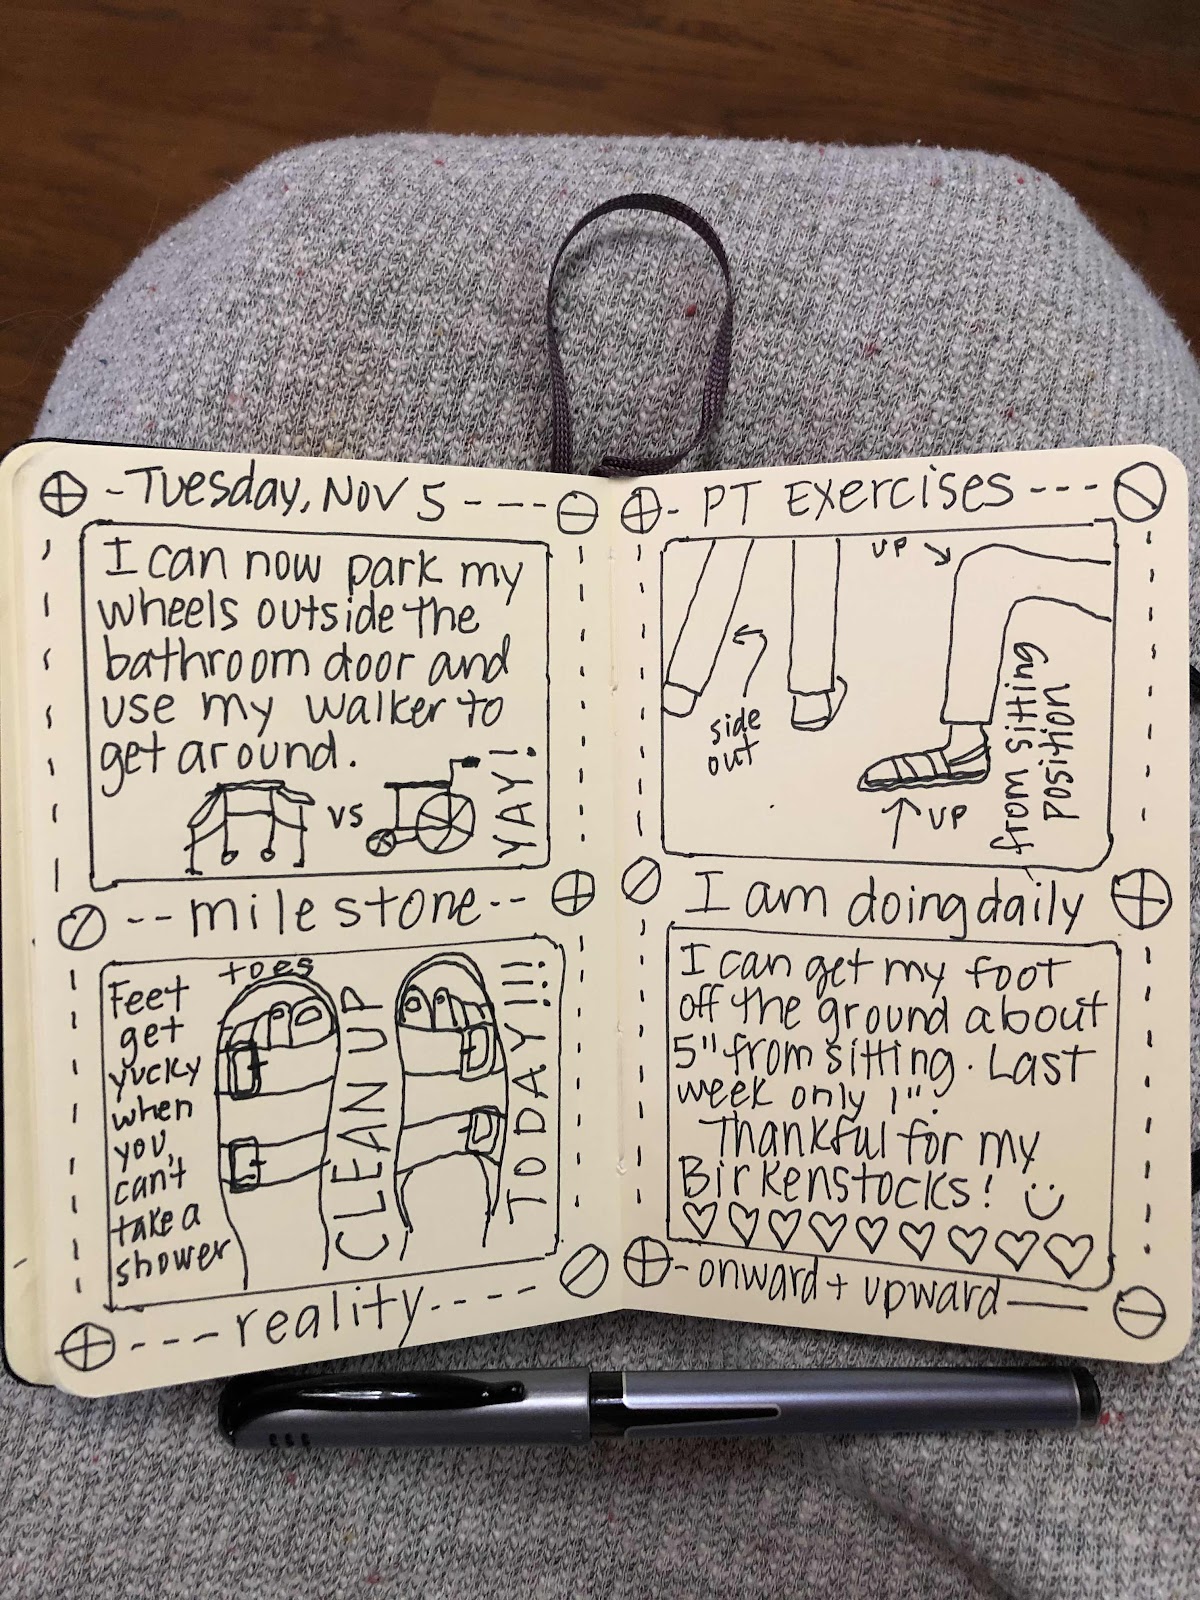 Tuesday, Nov 5
I can now park my
wheels outside the
bathroom door and
use my walker to
get around.
vs
YAY!
milestone
Feet
get
yucky
when
you
can't
take a
shower
toes
CLEAN UP
TODAY!!!
reality
PT Exercises
UP
side
out
from sitting
position
UP
I am doing daily
I can get my foot
off the ground about
5" from sitting. Last
week only 1".
Thankful for my
Birkenstocks!
onward + upward